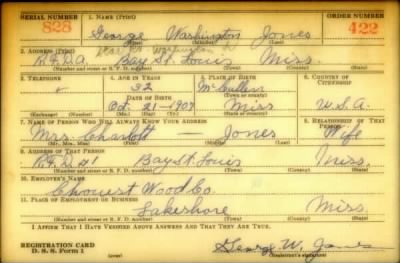 SERIAL NUMBER 1. NAME (Print) ORDER NUMBER
828 George Washington Jones 422
(First) (Middle) (Last)
2. ADDRESS (Print)
R.F.D.A. Bay St. Louis Miss.
(Number and street or R. F. D. number) (Town) (County) (State)
3. TELEPHONE 4. AGE IN YEARS 5. PLACE OF BIRTH 6. COUNTRY OF CITIZENSHIP
32
DATE OF BIRTH (Town or county)
Oct. 21-1907 Miss U.S.A.
(Exchange) (Number) (Mo.) (Day) (Yr.) (State or country)
7. NAME OF PERSON WHO WILL ALWAYS KNOW YOUR ADDRESS 8. RELATIONSHIP OF THAT PERSON
Mrs. Charlott — Jones Wife
(Mr., Mrs., Miss) (First) (Middle) (Last)
9. ADDRESS OF THAT PERSON
R.F.D #1 Bay St. Louis Miss.
(Number and street or R. F. D. number) (Town) (County) (State)
10. EMPLOYER'S NAME
Wood Co.
11. PLACE OF EMPLOYMENT OR BUSINESS
Lakeshore Miss.
(Number and street or R. F. D. number) (Town) (County) (State)
I AFFIRM THAT I HAVE VERIFIED ABOVE ANSWERS AND THAT THEY ARE TRUE.
REGISTRATION CARD George W. Jones
D. S. S. Form 1 (Registrant's signature)